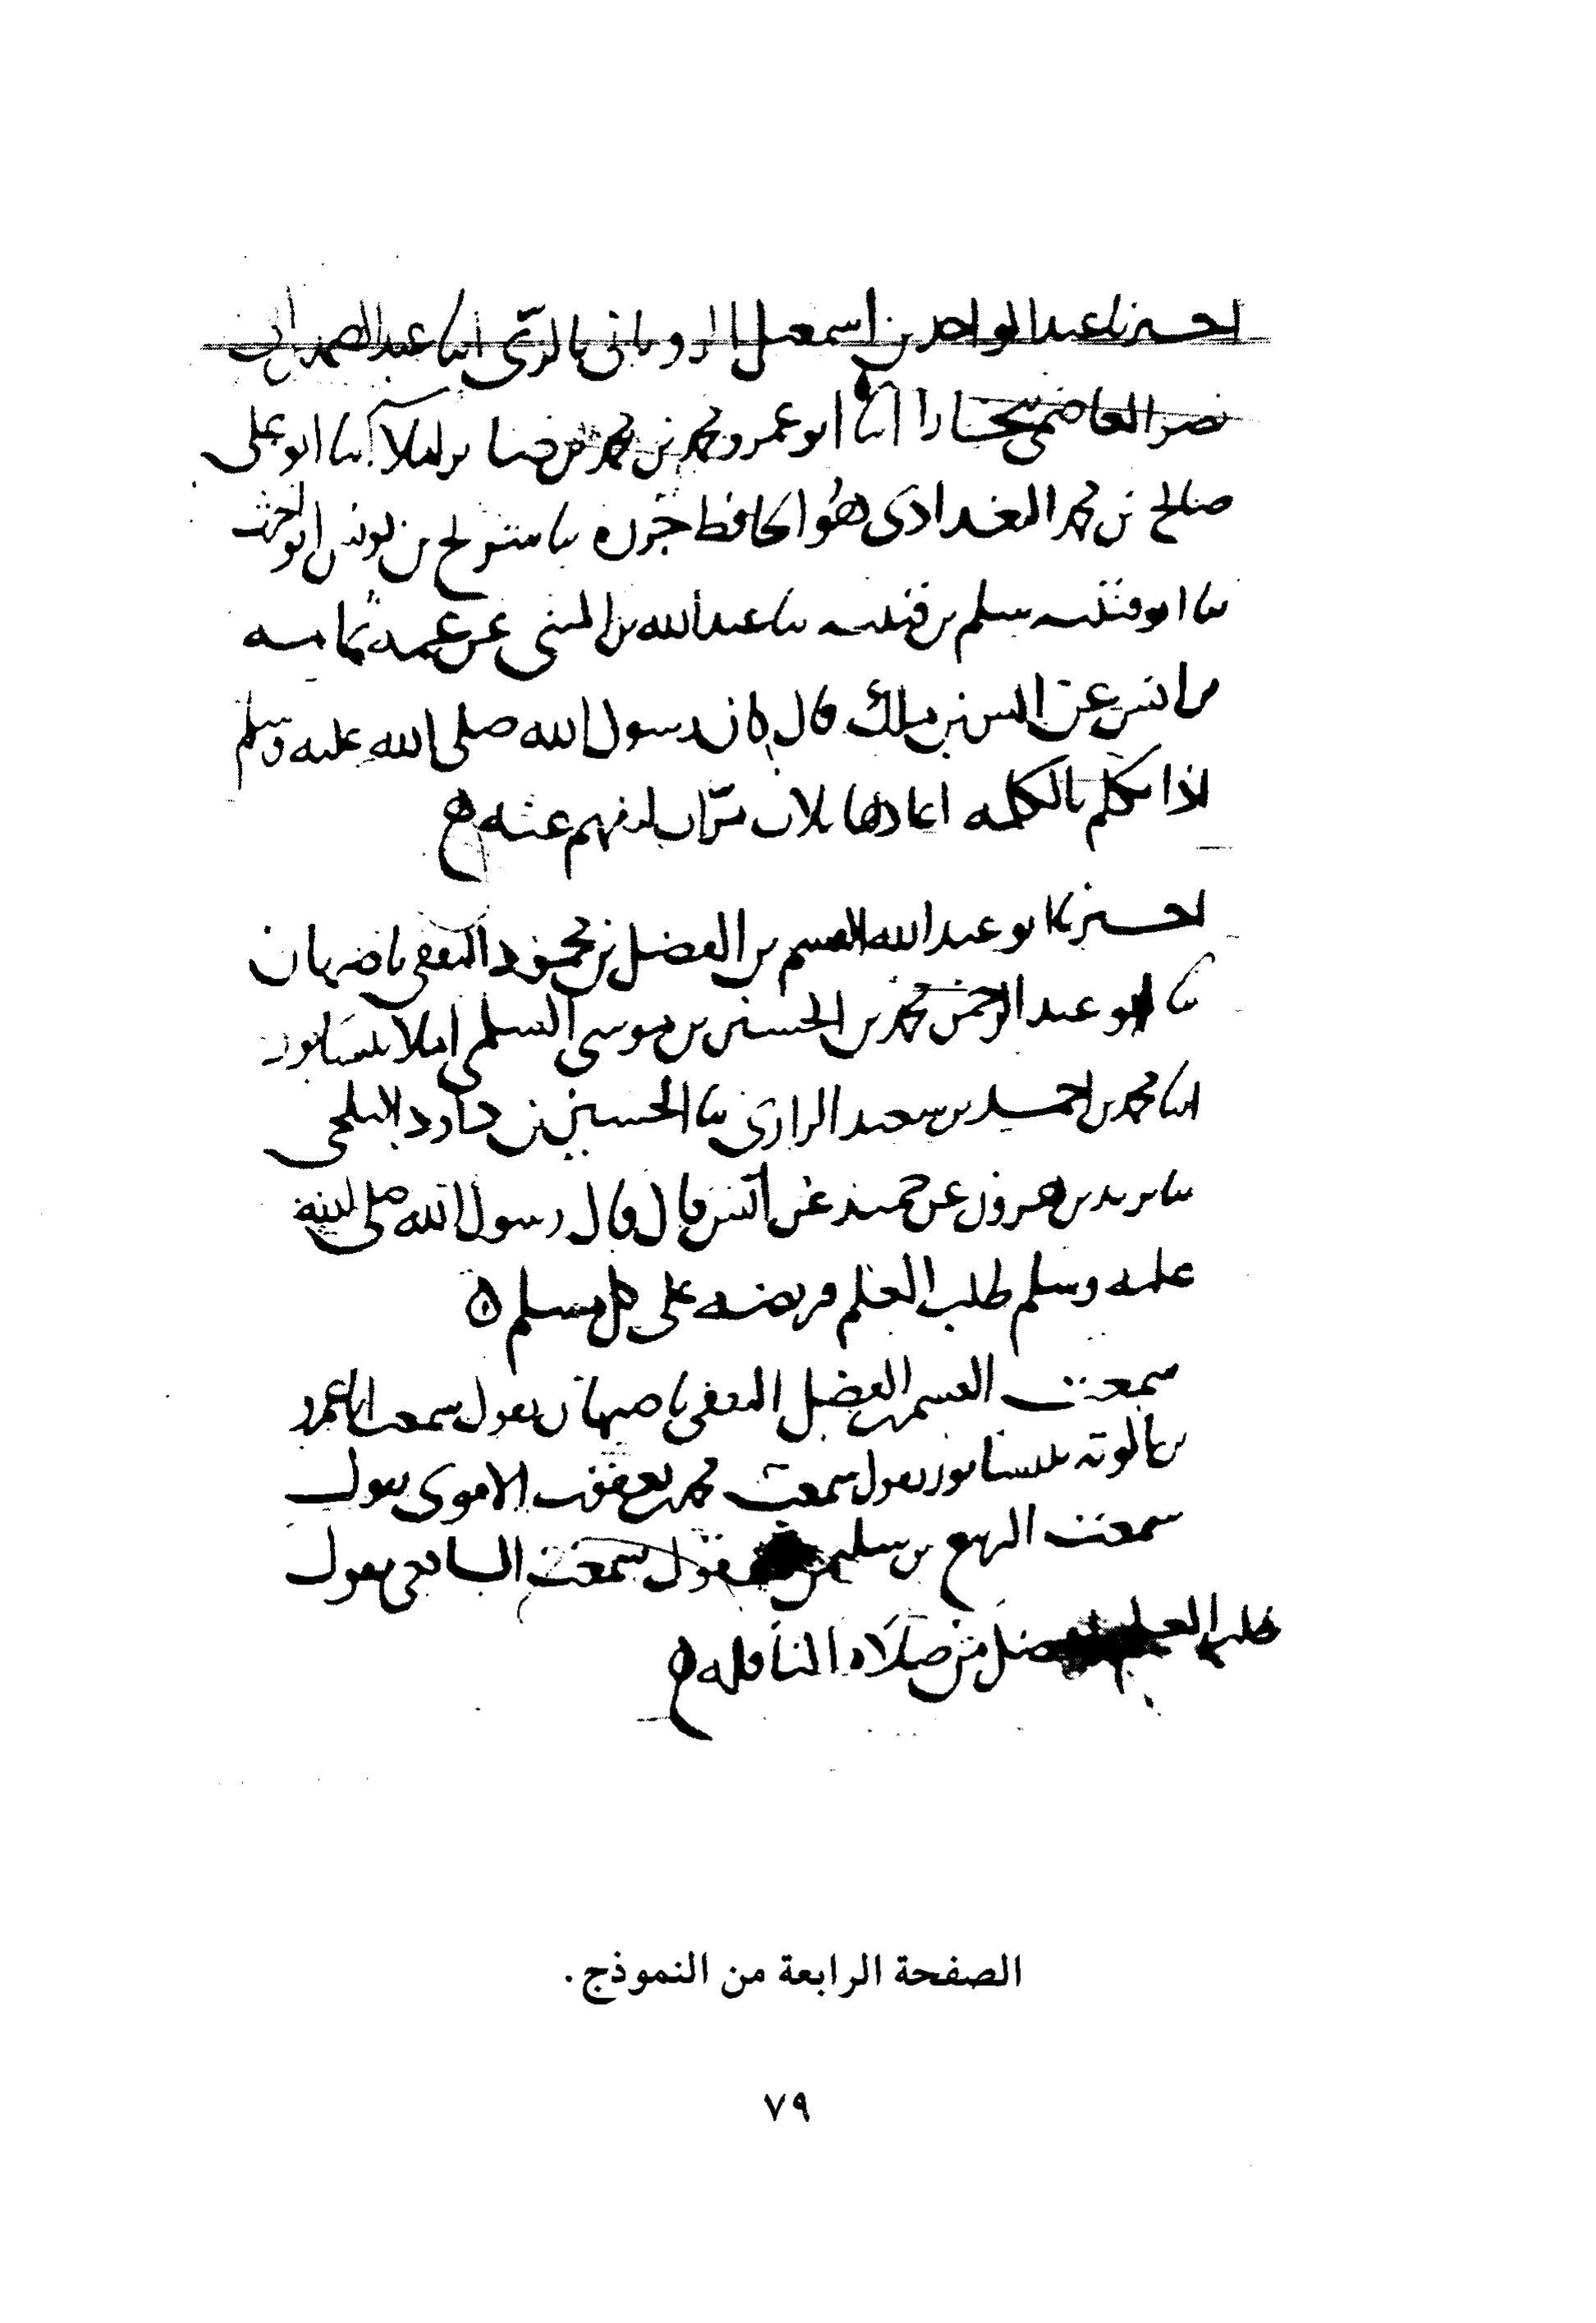 اخبرنا عبد الواحد بن اسمعيل الروياني بالري انبا عبد الصمد ابن
نصر العاصمي ببخارا انبا ابو عمرو محمد بن محمد بن صابر املاء ثنا ابو علي
صالح بن محمد البغدادي هو الحافظ جزرة ثنا سريج بن يونس ابو الحرث
ثنا ابو قتيبة سلم بن قتيبة ثنا عبد الله بن المثنى عن عمه ثمامة
بن انس عن انس بن ملك قال كان رسول الله صلى الله عليه وسلم
اذا تكلم بالكلمة اعادها ثلاث مرات لتفهم عنه ه
اخبرنا ابو عبد الله القسم بن الفضل بن محمود الثقفي باصبهان
ثنا ابو عبد الرحمن محمد بن الحسين بن موسى السلمي املاء بنيسابور
انبا محمد بن احمد بن سعيد الرازي ثنا الحسين بن داود البلخي
ثنا يزيد بن هرون عن حميد عن انس قال قال رسول الله صلى الله
عليه وسلم طلب العلم فريضة على كل مسلم ه
سمعت القسم بن الفضل الثقفي باصبهان يقول سمعت ابا عمرو
بن بالويه بنيسابور يقول سمعت محمد بن يعقوب الاموي يقول
سمعت الربيع بن سليمن يقول سمعت الشافعي يقول
طلب العلم افضل من صلاة النافلة ه
الصفحة الرابعة من النموذج.
٧٩